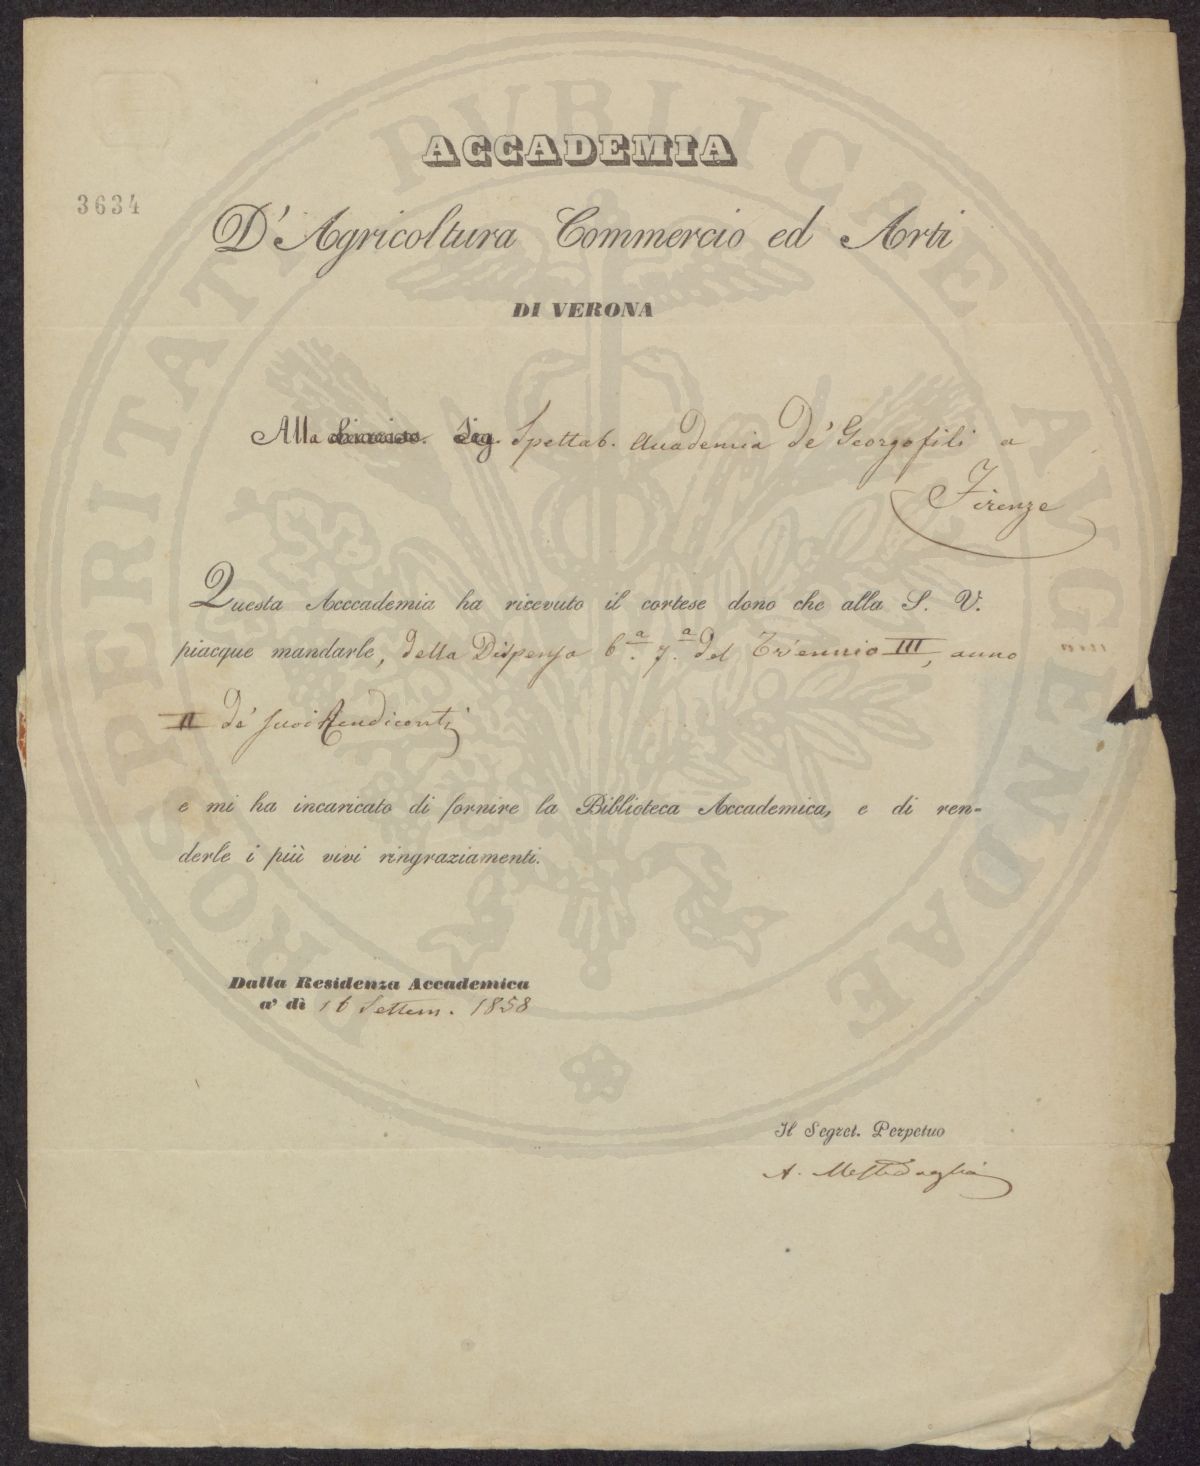 ACCADEMIA
3634
D'Agricoltura Commercio ed Arti
DI VERONA
Alla chiariss. Sig. Spettab. Accademia de' Georgofili a
Firenze
Questa Acccademia ha ricevuto il cortese dono che alla S. V.
piacque mandarle, della Dispensa 6.ª 7.ª del Triennio III, anno
II de' suoi Rendiconti
e mi ha incaricato di fornire la Biblioteca Accademica, e di ren-
derle i più vivi ringraziamenti.
Dalla Residenza Accademica
a' dì 16 Settem. 1858
Il Segret. Perpetuo
A. Messedaglia
PROSPERITATI PUBLICAE AVGENDAE